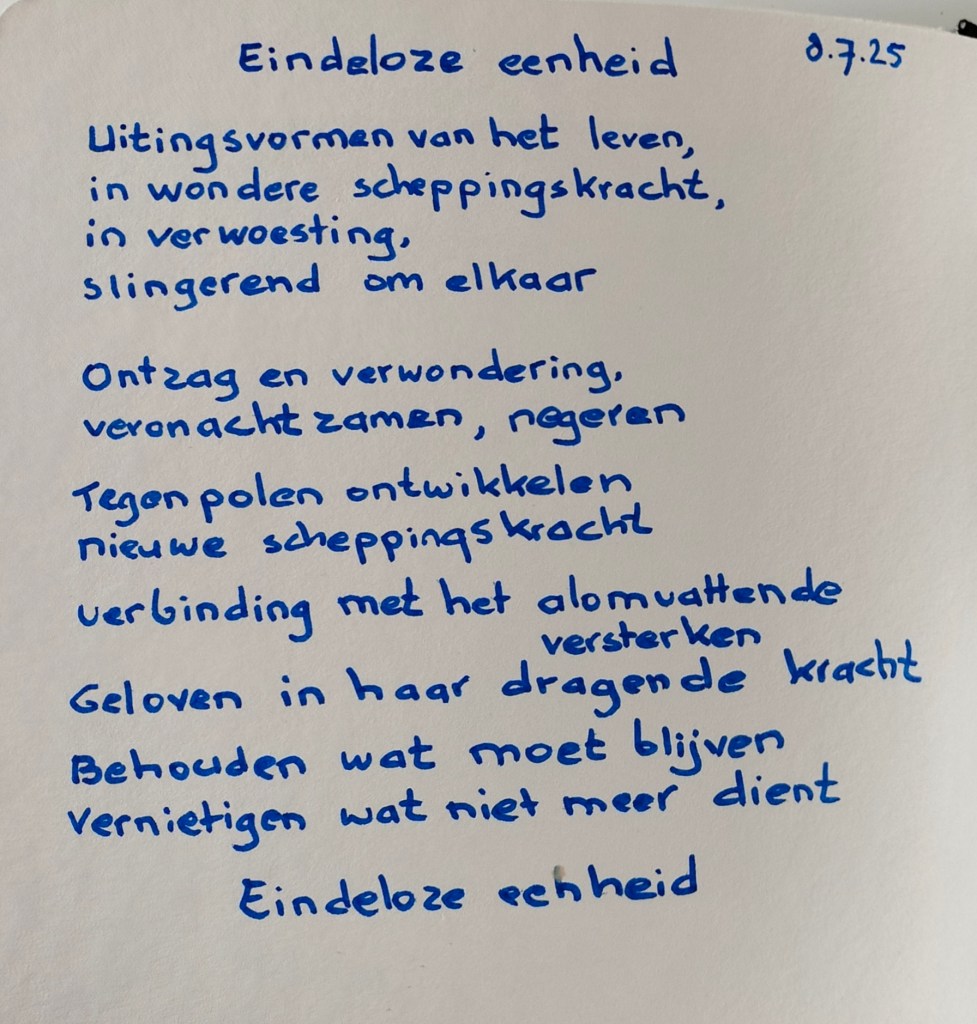 Eindeloze eenheid 8.7.25
Uitingsvormen van het leven,
in wondere scheppingskracht,
in verwoesting,
slingerend om elkaar
Ontzag en verwondering,
veronachtzamen, negeren
Tegenpolen ontwikkelen
nieuwe scheppingskracht
verbinding met het alomvattende
versterken
Geloven in haar dragende kracht
Behouden wat moet blijven
vernietigen wat niet meer dient
Eindeloze eenheid